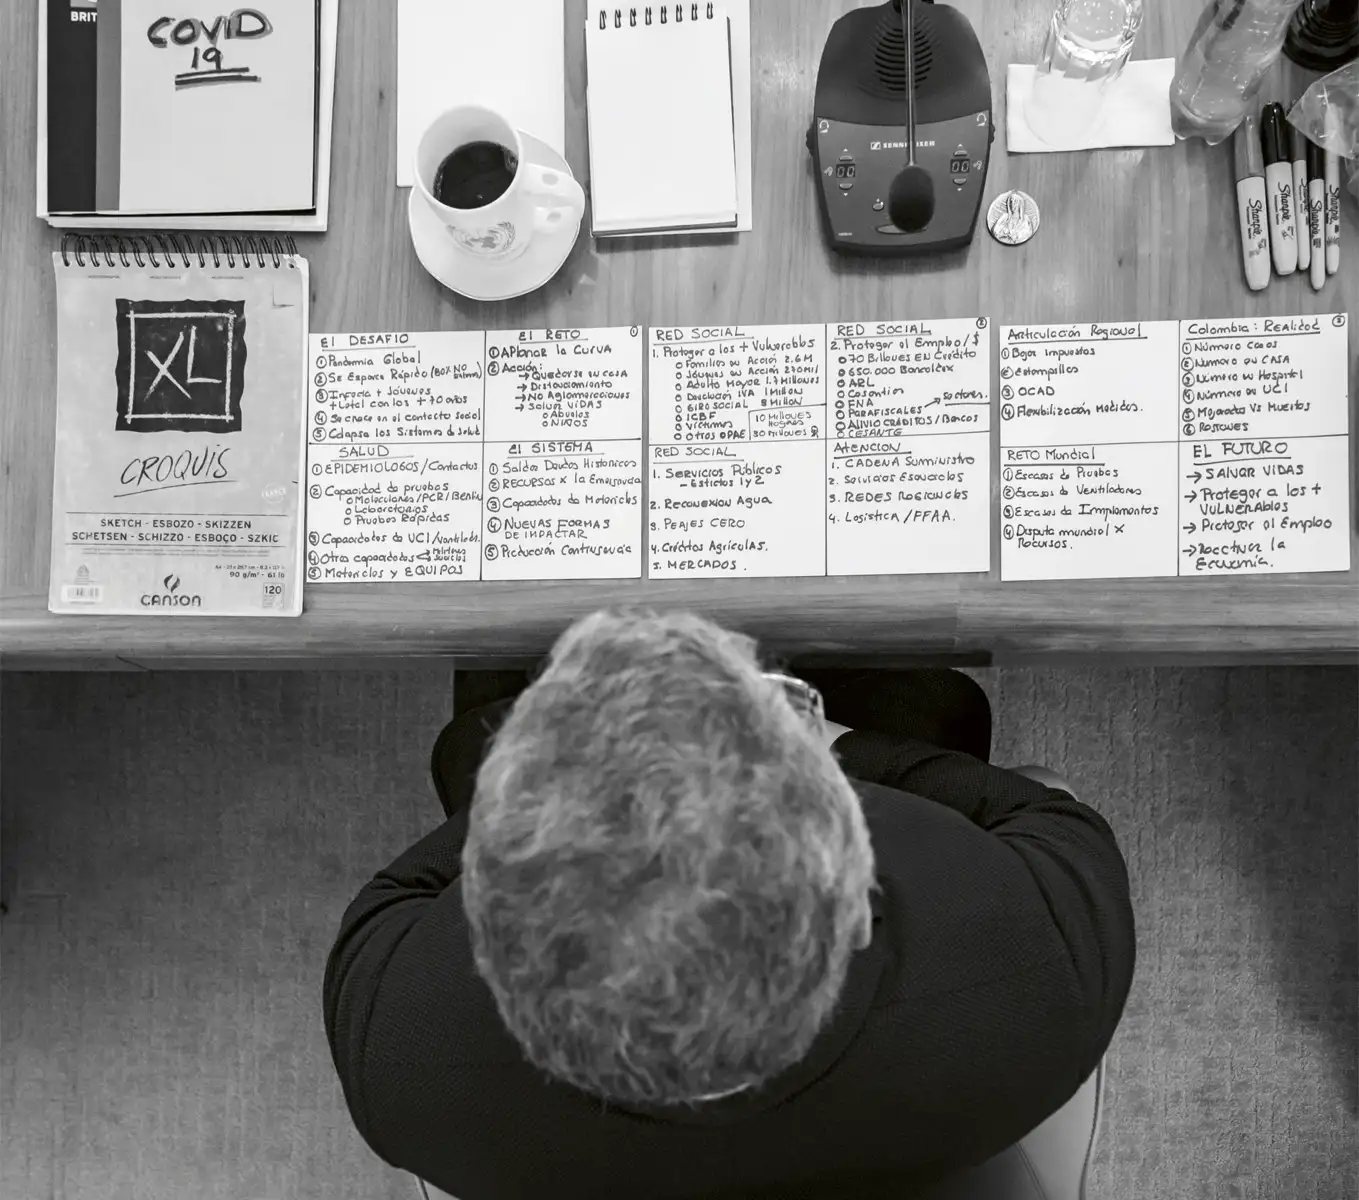 BRIT
COVID
19
SENNHEISER
00
00
Sharpie
Sharpie
Sharpie
Sharpie
XL
CROQUIS
SKETCH - ESBOZO - SKIZZEN
SCHETSEN - SCHIZZO - ESBOÇO - SZKIC
90 g/m² - 61 lb
120
CANSON
El DESAFIO
① Pandemia Global
② Se Esparce Rápido
③ Infecta + Jóvenes
+ Letal con los + 70 años
④ Se crece en el contacto social
⑤ Colapsa los Sistemas de salud
El RETO
①
① APlanar la Curva
② Acción:
→ Quedarse en casa
→ Distanciamiento
→ No Aglomeraciones
→ Salvar ViDAS
o Abuelos
o Niños
SALUD
① EPIDEMIOLOGOS/Contactos
② Capacidad de pruebas
o Moleculares/PCR/
o Laboratorios
o Pruebas Rápidas
③ Capacidades de UCI/Ventilad.
④ Otras capacidades
⑤ Materiales y EQUIPOS
El SISTEMA
① Saldar Deudas Históricas
② RECURSOS x la Emergencia
③ Capacidades de Materiales
④ NUEVAS FORMAS
DE IMPACTAR
⑤ Producción
RED SOCIAL
1. Proteger a los + Vulnerables
o Familias en Acción 2.6 M
o Jóvenes en Acción
o Adulto Mayor 1.7 Millones
o Devolución IVA 1 Millon
o GIRO SOCIAL 3 Millon
o ICBF
o Víctimas
o Otros OPAE
10 Millones
Hogares
30 Millones
RED SOCIAL
②
2. Proteger el Empleo/$
o 70 Billones EN Crédito
o 650.000 Bancoldex
o ARL
o Cesantías
o FNA
o PARAFISCALES → Sectores.
o Alivio CRÉDITOS/Bancos
o CESANTE
RED SOCIAL
1. Servicios Públicos
- Estratos 1 y 2
2. Reconexion Agua
3. Peajes CERO
4. Créditos Agrícolas.
5. MERCADOS.
Atención
1. CADENA Suministro
2. Servicios Esenciales
3. REDES Regionales
4. Logística /FFAA.
Articulación Regional
① Bajar Impuestos
② Estampillas
③ OCAD
④ Flexibilización Medidas.
Colombia: Realidad
③
① Número Casos
② Número en CASA
③ Número en Hospital
④ Número en UCI
⑤ Mejorados Vs Muertos
⑥
RETO Mundial
① Escasez de Pruebas
② Escasez de Ventiladores
③ Escasez de Implementos
④ Disputa mundial x
Recursos.
EL FUTURO
→ SALVAR VIDAS
→ Proteger a los +
VULNERABLES
→ Proteger el Empleo
→ Reactivar la
Economía.